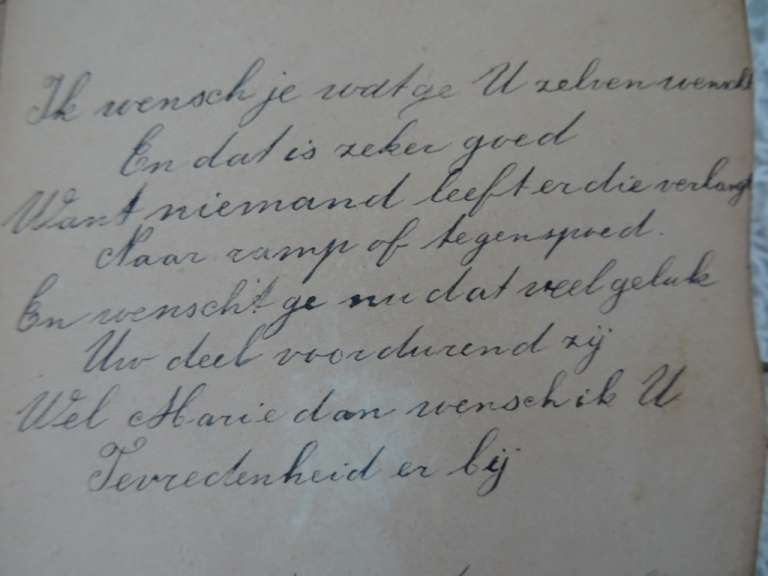 Ik wensch je wat ge U zelven wenscht
En dat is zeker goed
Want niemand leeft er die verlangt
Naar ramp of tegenspoed.
En wenscht ge nu dat veel geluk
Uw deel voordurend zij
Wel Marie dan wensch ik U
Tevredenheid er bij